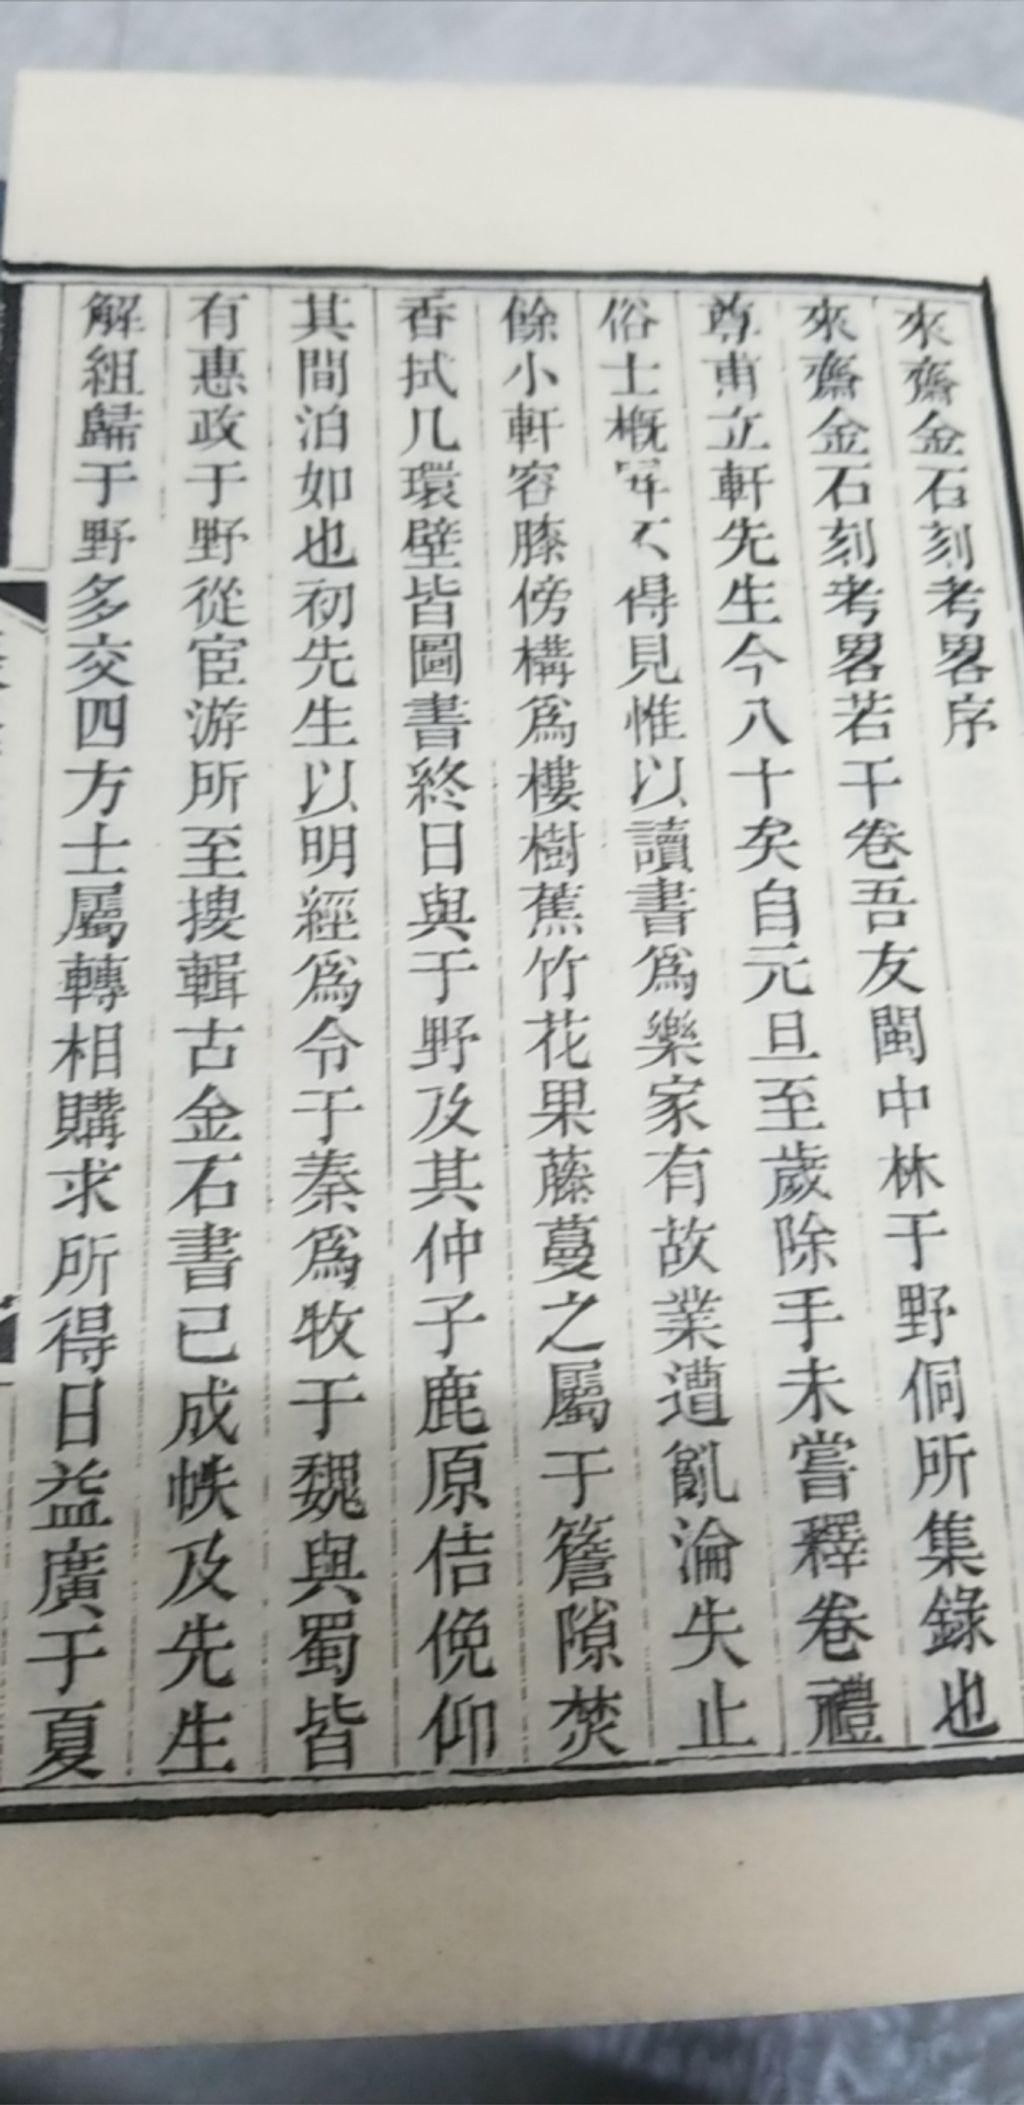 來齋金石刻考畧序
來齋金石刻考畧若干卷吾友閩中林于野侗所集錄也
尊甫立軒先生今八十矣自元旦至歲除手未嘗釋卷禮
俗士概罕不得見惟以讀書爲樂家有故業遭亂淪失止
餘小軒容膝傍構爲樓樹蕉竹花果藤蔓之屬于簷隙焚
香拭几環壁皆圖書終日與于野及其仲子鹿原佶俛仰
其間泊如也初先生以明經爲令于秦爲牧于魏與蜀皆
有惠政于野從宦游所至搜輯古金石書已成帙及先生
解組歸于野多交四方士屬轉相購求所得日益廣于夏